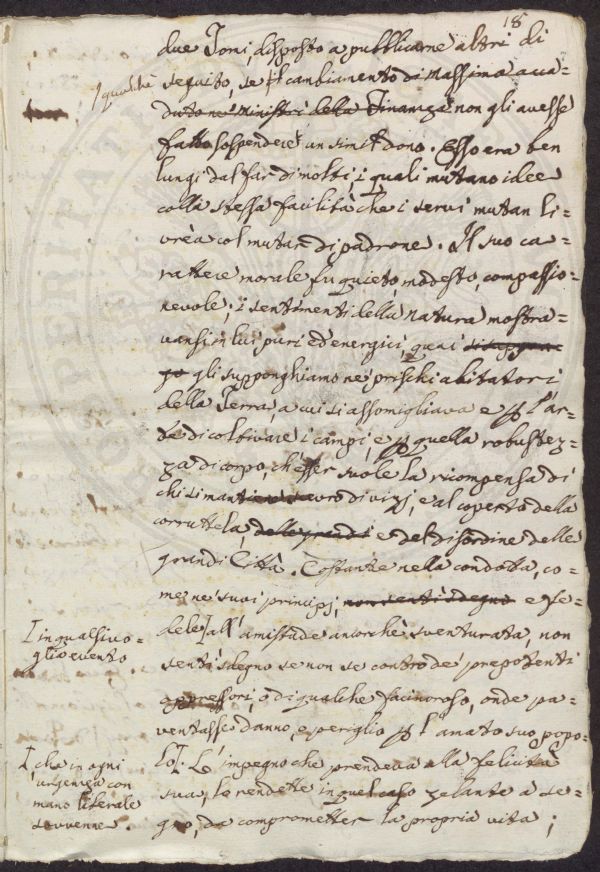 18
due Tomi, disposto a pubblicarne altri di
seguito, se il cambiamento di Massima acca=
duto ne' Ministri della Finanza non gli avesse
fatto sospendere un simil dono. Esso era ben
lungi dal far di molti, i quali mutano idee
colla stessa facilità che i servi mutan li=
vrèa col mutar di padrone. Il suo ca=
rattere morale fu quieto, modesto, compassio=
nevole; i sentimenti della natura mostra=
vansi in lui puri ed energici, quai
gli supponghiamo ne' prischi abitatori
della Terra, a cui si assomigliava e p l'ar=
te di coltivare i campi, e p quella robustez=
za di corpo, ch'esser suole la ricompensa di
chi si mantiene scevro di vizj, e al coperto della
corruttela, delle grandi e del disordine delle
grandi Città. Costante nella condotta, co=
me ne' suoi principj, non sentì sdegno e fe=
dele all'amistade ancorchè sventurata, non
sentì sdegno se non se contro de' prepotenti
oppressori, o di qualche facinoroso, onde pa=
ventasse danno, e periglio p l'amato suo popo=
lo. L'impegno che prendeva alla felicità
sua, le rendette in quel caso zelante a se=
gno, da comprometter la propria vita;
qualche
in qualsivo=
glia evento
che in ogni
urgenza con
mano liberale
sovvenne.